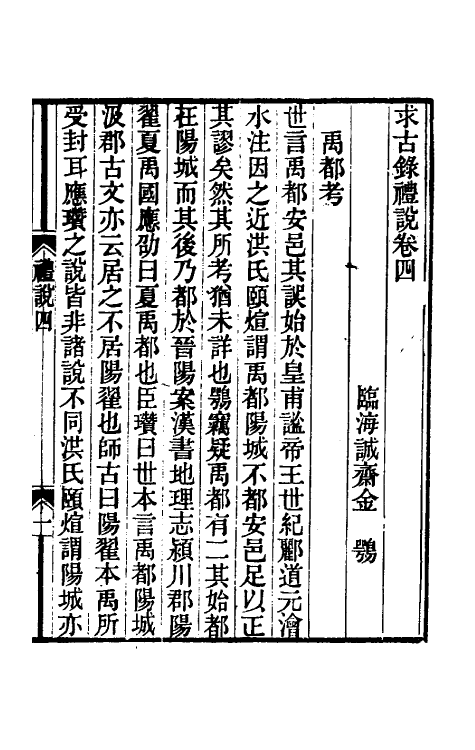 求古錄禮說卷四
臨海誠齋金　鶚
禹都考
世言禹都安邑其誤始於皇甫謐帝王世紀酈道元澮
水注因之近洪氏頤煊謂禹都陽城不都安邑足以正
其謬矣然其所考猶未詳也鶚竊疑禹都有二其始都
在陽城而其後乃都於晉陽案漢書地理志潁川郡陽
翟夏禹國應劭曰夏禹都也臣瓚曰世本言禹都陽城
汲郡古文亦云居之不居陽翟也師古曰陽翟本禹所
受封耳應瓚之說皆非諸說不同洪氏頤煊謂陽城亦
禮說四
一